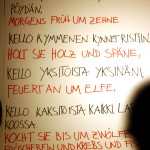 PÖYDÄN.
MORGENS FRÜH UM ZEHNE
KELLO KYMMENEN KYNNET RISTIIN.
HOLT SIE HOLZ UND SPÄNE,
KELLO YKSITOISTA YKSINÄNI,
FEUERT AN UM ELFE,
KELLO KAKSITOISTA KAIKKI LA
KOOSSA.
KOCHT SIE BIS UM ZWÖLFE
UND KREBS UND